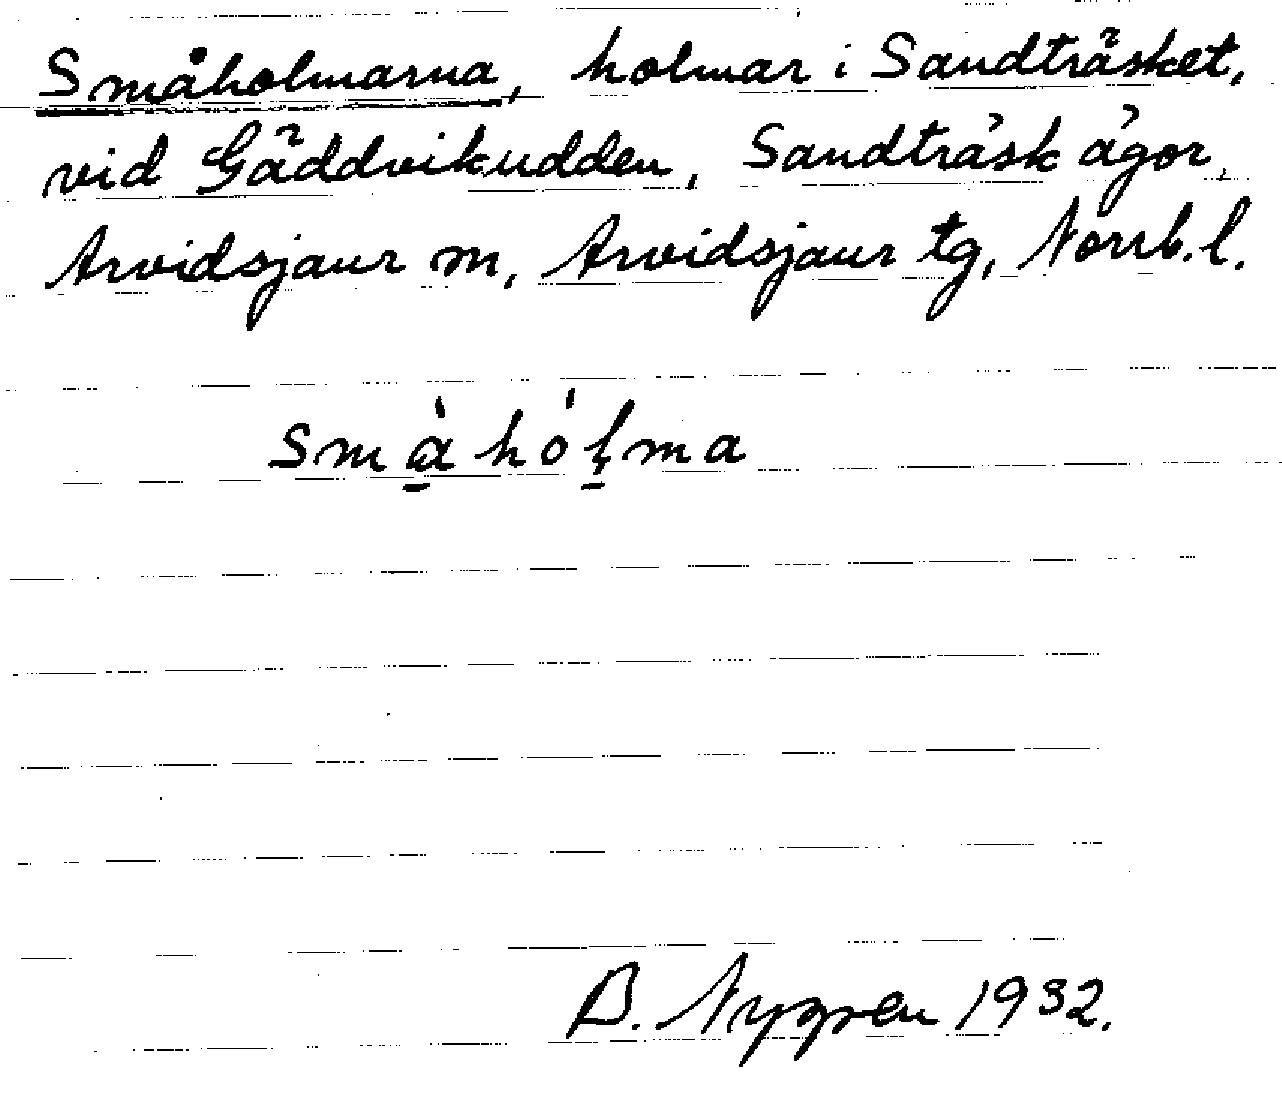 Småholmarna, holmar i Sandträsket,
vid Gäddvikudden, Sandträsk ägor,
Arvidsjaur m, Arvidsjaur tg, Norrb. l.
småhólma
B. Nygren 1932.